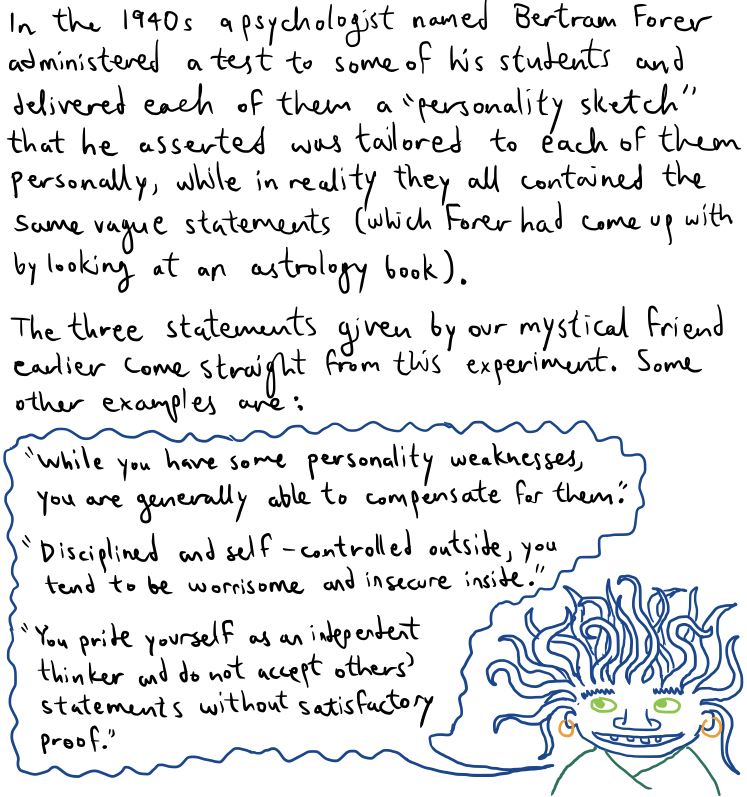 In the 1940s a psychologist named Bertram Forer
administered a test to some of his students and
delivered each of them a "personality sketch"
that he asserted was tailored to each of them
personally, while in reality they all contained the
same vague statements (which Forer had come up with
by looking at an astrology book).
The three statements given by our mystical friend
earlier come straight from this experiment. Some
other examples are:
"While you have some personality weaknesses,
you are generally able to compensate for them."
"Disciplined and self-controlled outside, you
tend to be worrisome and insecure inside."
"You pride yourself as an independent
thinker and do not accept others'
statements without satisfactory
proof."